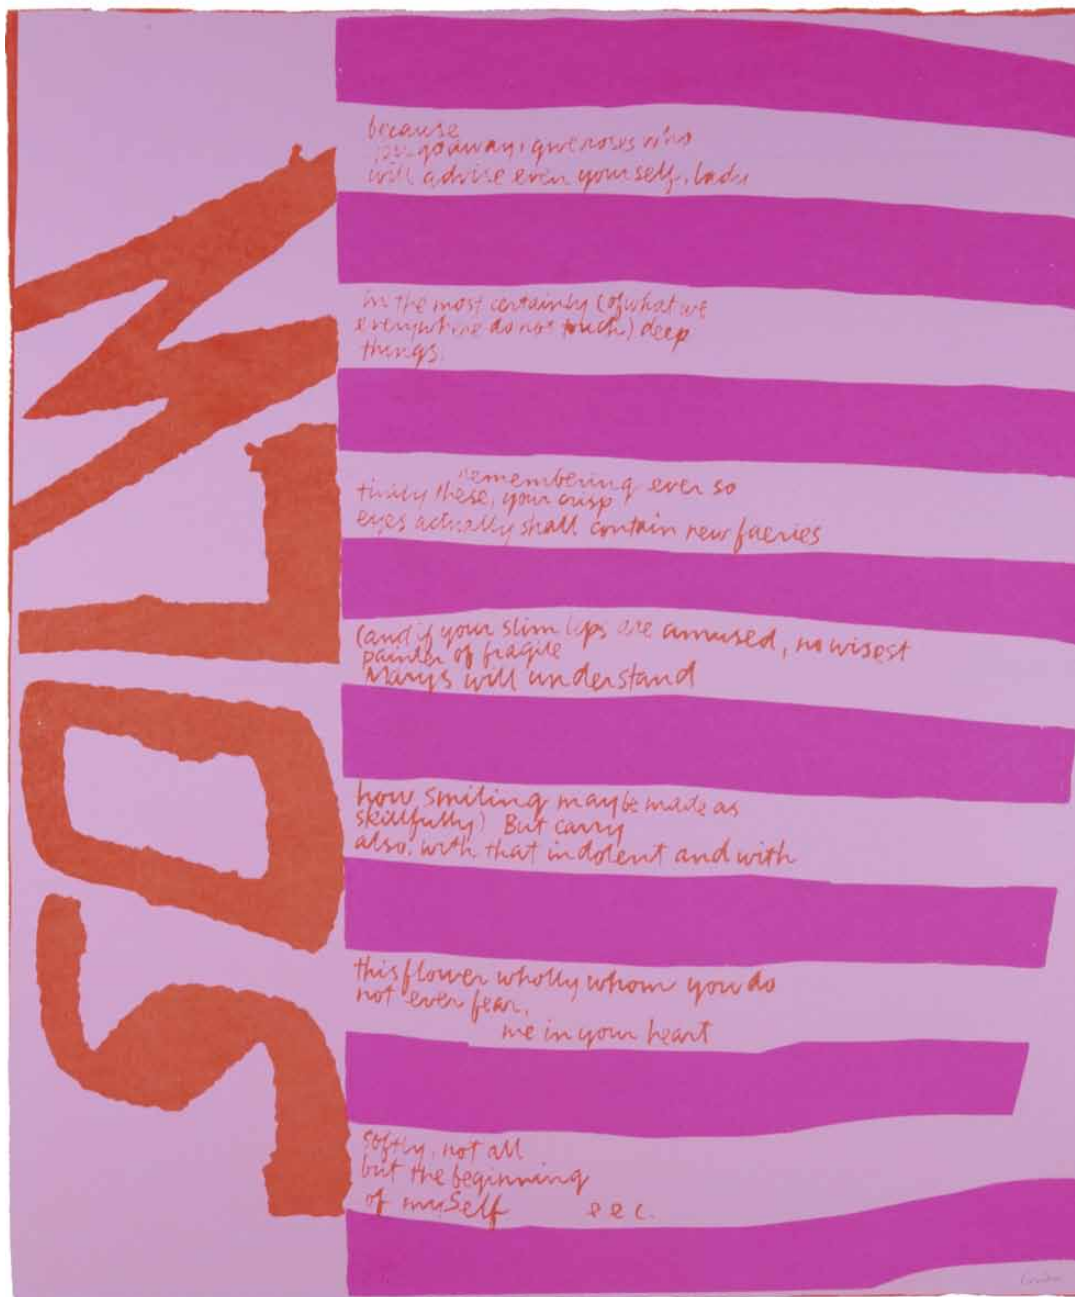 SOLW
because
you go away i give roses who
will advise even yourself, lady
in the most certainly (of what we
everywhere do not touch) deep
things.
remembering ever so
tinily these, your crisp
eyes actually shall contain new faeries
(and if your slim lips are amused, no wisest
painter of fragile
Marys will understand
how smiling may be made as
skillfully) But carry
also, with that indolent and with
this flower wholly whom you do
not ever fear,
me in your heart
softly, not all
but the beginning
of mySelf e e c.